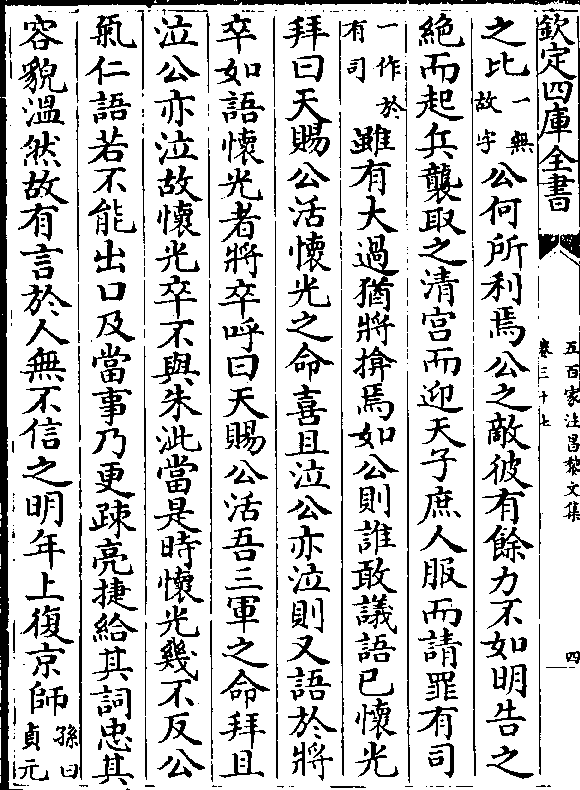 欽定四庫全書
五百家注昌黎文集
卷三十七
四
之比一無故字公何所利焉公之敵彼有餘力不如明告之
絶而起兵襲取之清宫而迎天子庶人服而請罪有司
一作於有司雖有大過猶將揜焉如公則誰敢議語已懷光
拜曰天賜公活懷光之命喜且泣公亦泣則又語於將
卒如語懷光者將卒呼曰天賜公活吾三軍之命拜且
泣公亦泣故懷光卒不與朱泚當是時懷光幾不反公
氣仁語若不能出口及當事乃更疎亮捷給其詞忠其
容貌溫然故有言於人無不信之明年上復京師孫曰貞元